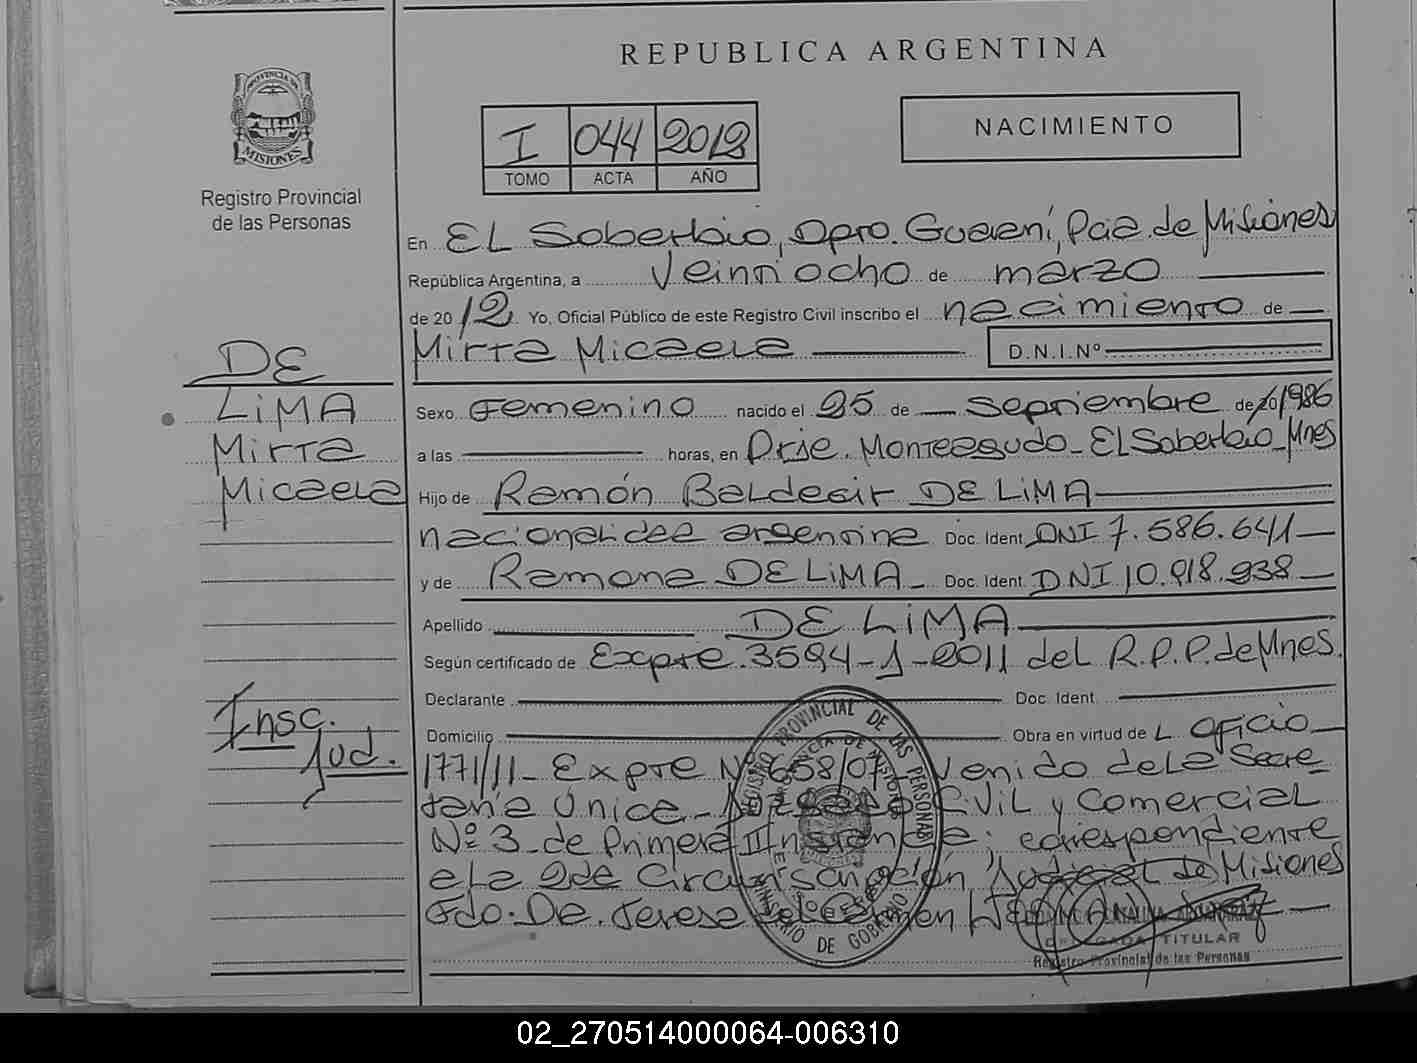 REPUBLICA ARGENTINA
PROVINCIA DE
MISIONES
Registro Provincial
de las Personas
I 044 2012
TOMO ACTA AÑO
NACIMIENTO
En EL Soberbio, Dpto. Guaraní, Pcia. de Misiones
República Argentina, a veintiocho de marzo
de 2012 Yo, Oficial Público de este Registro Civil inscribo el nacimiento de
Mirta Micaela D.N.I.Nº
DE
LiMA
Mirta
Micaela
Sexo Femenino nacido el 25 de septiembre de 1986
a las horas, en Prje. Monteagudo - El Soberbio - Mnes
Hijo de Ramón Baldecir DE LiMA
nacionalidad argentina Doc. Ident. DNI 7.586.641
y de Ramona DE LiMA - Doc. Ident. DNI 10.918.938
Apellido DE LiMA
Según certificado de Expte. 3594-1-2011 del R.P.P. de Mnes.
Declarante Doc. Ident.
Insc.
Jud.
Domicilio Obra en virtud de L. Oficio
1771/11 - Expte Nº 658/07 - Venido de La Secre
taria Única - Juzgado Civil y Comercial
Nº 3 - de Primera Instancia; correspondiente
a La 2da Circunscripción Judicial de Misiones
Fdo. Dra. Teresa del Carmen
REGISTRO PROVINCIAL DE LAS PERSONAS
PROVINCIA DE MISIONES
MINISTERIO DE GOBIERNO
TITULAR
Registro Provincial de las Personas
02_270514000064-006310